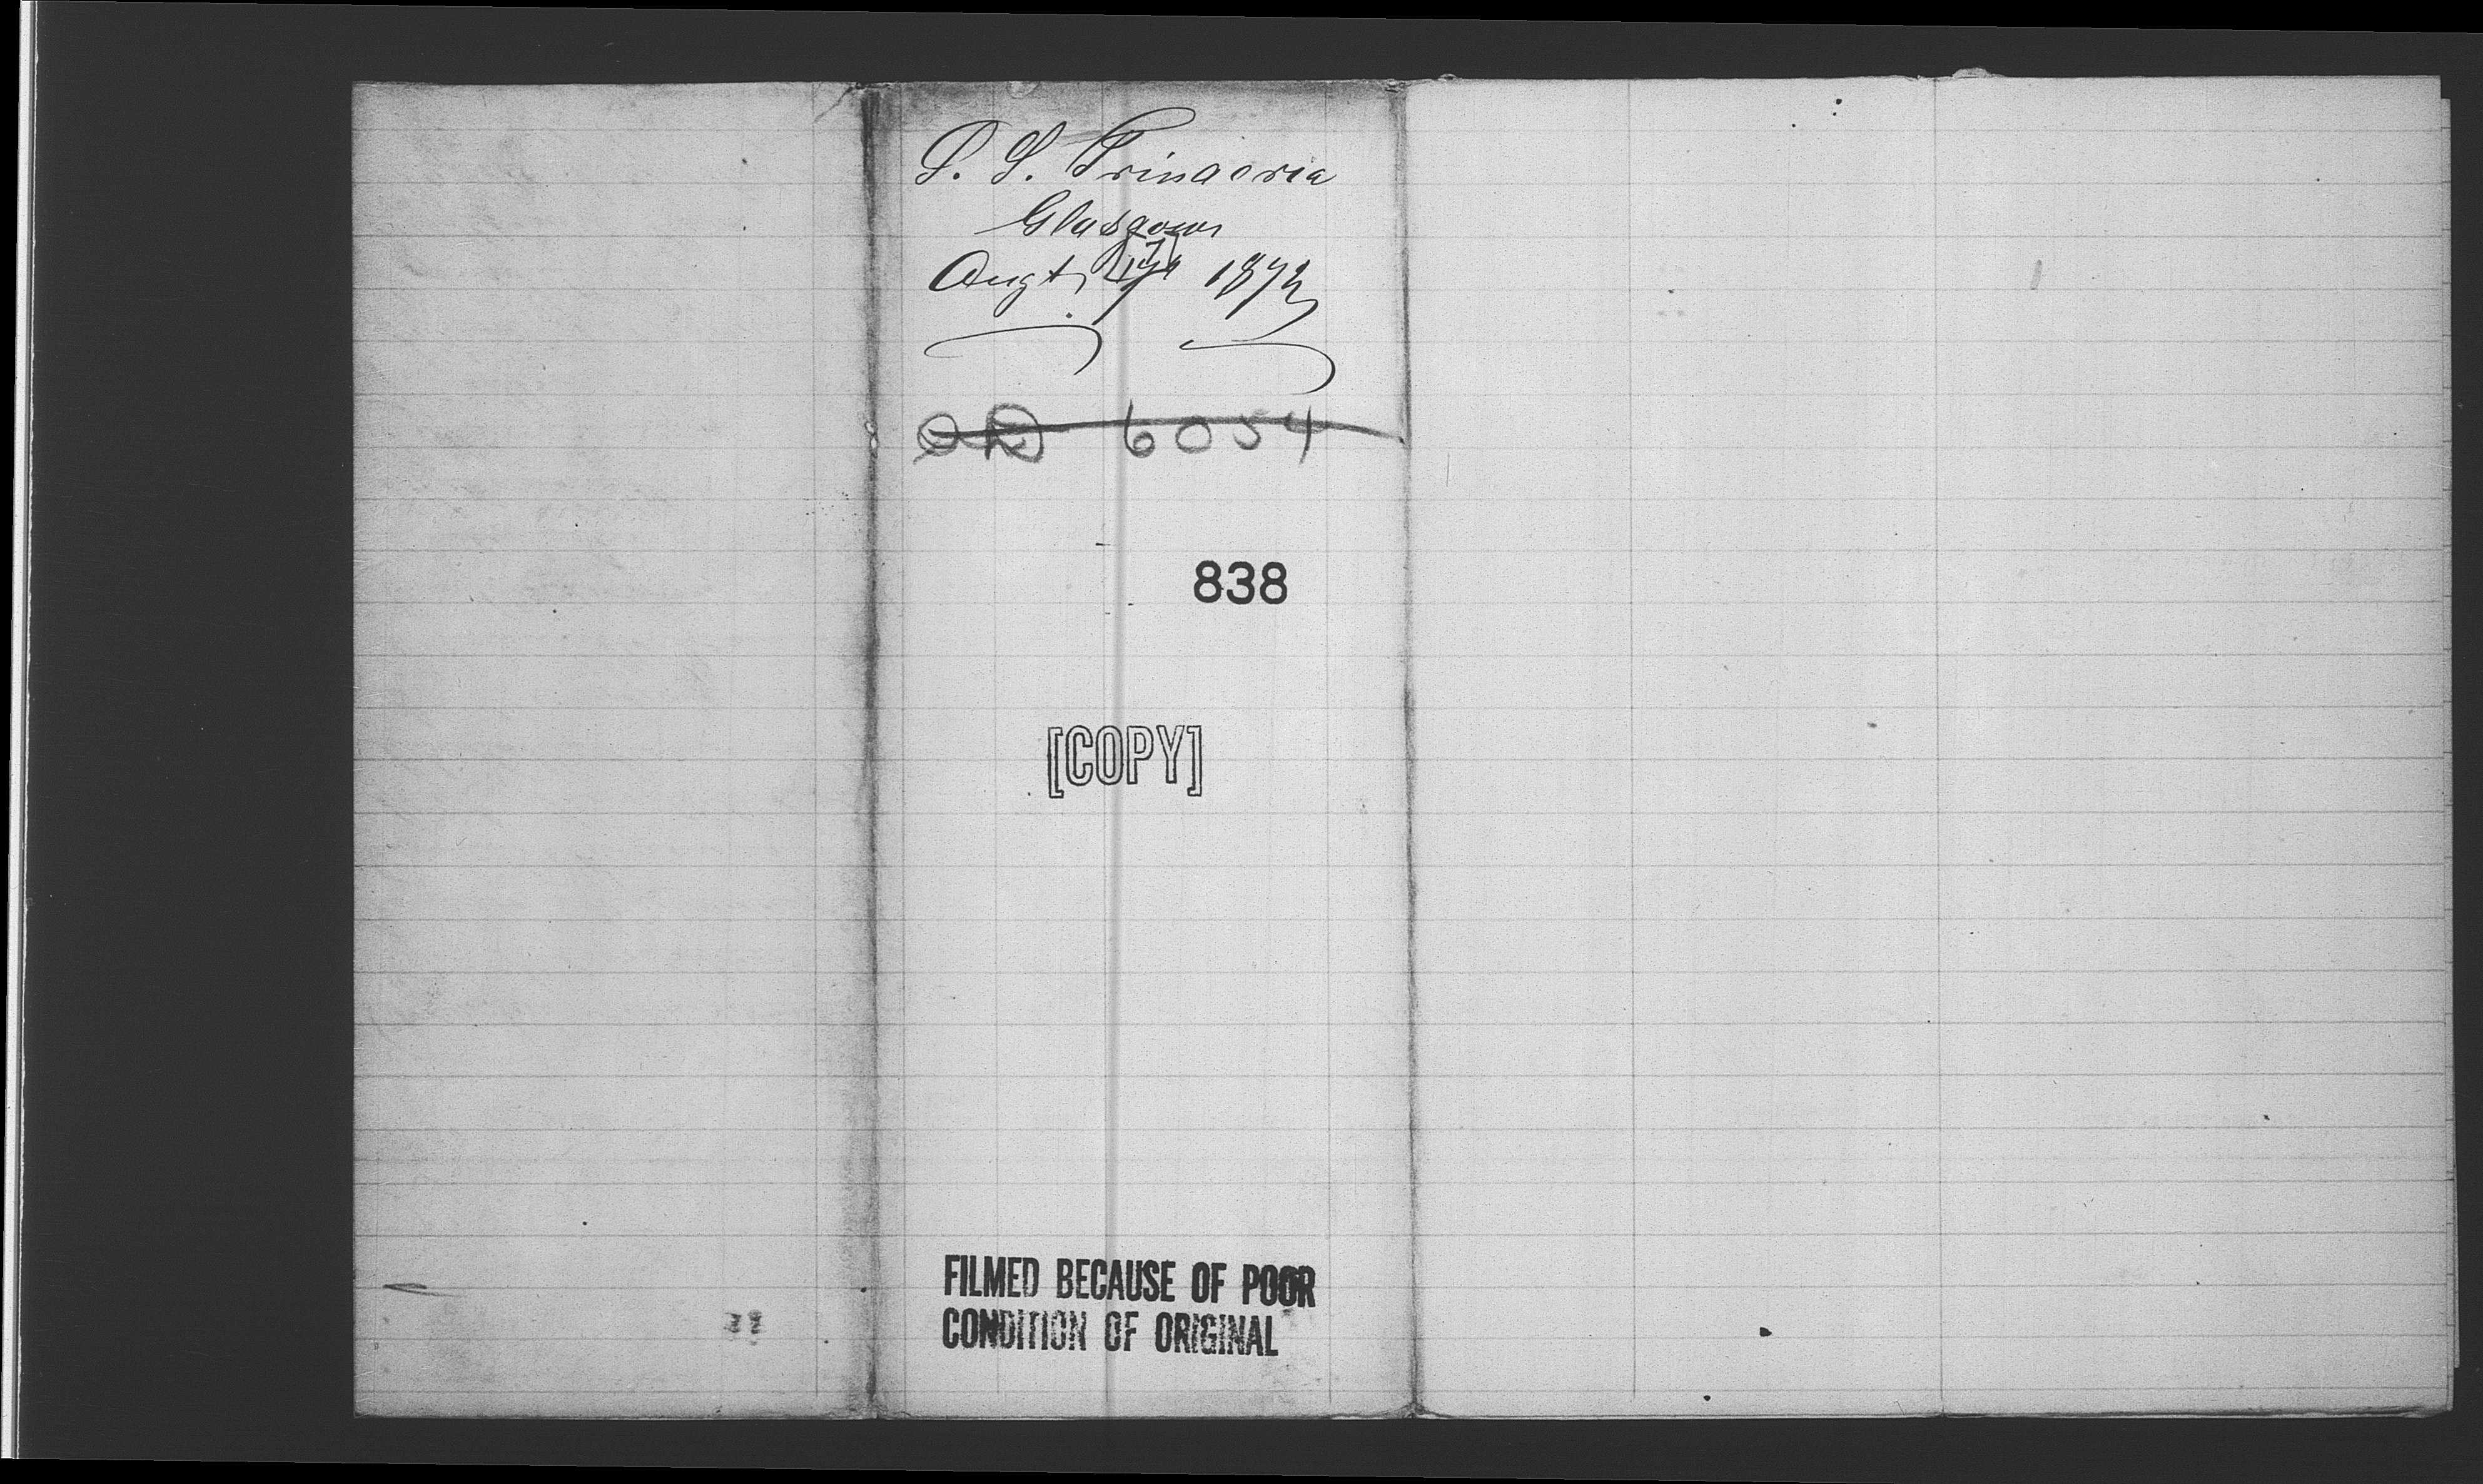 S. S. Trinacria
Glasgow
Augt, 17 1872
6054
838
[COPY]
FILMED BECAUSE OF POOR
CONDITION OF ORIGINAL